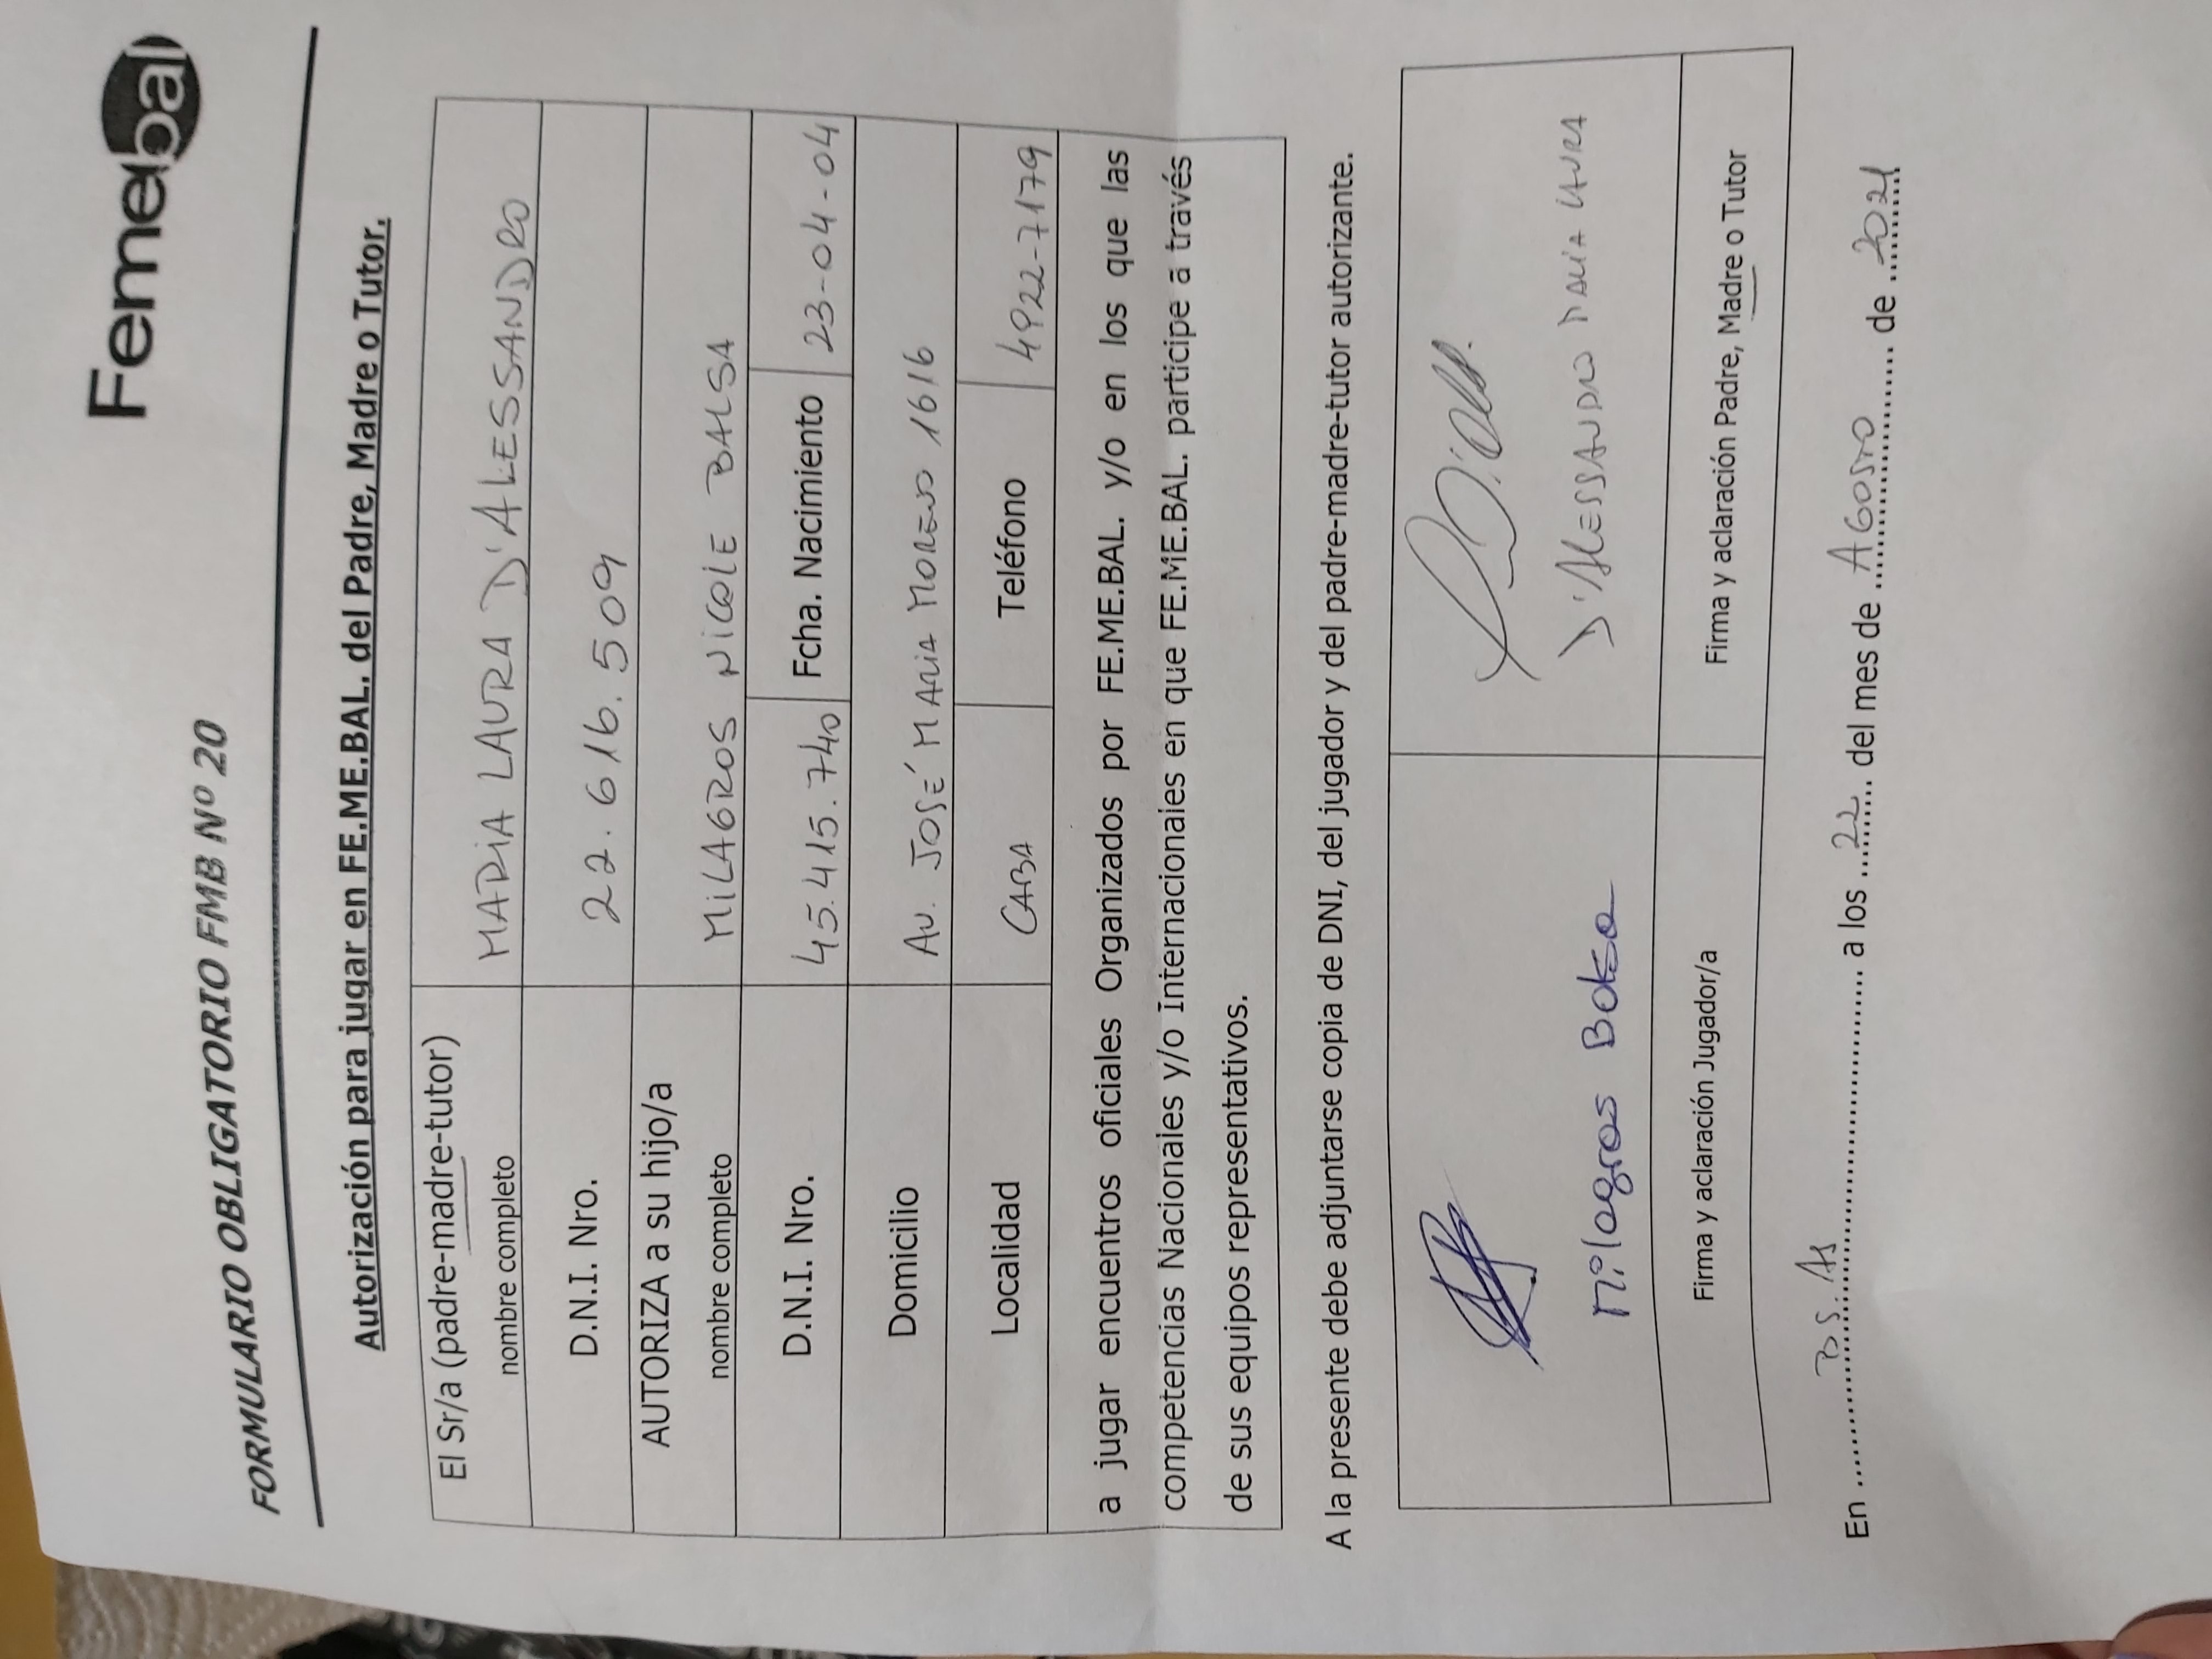 Femebal
FORMULARIO OBLIGATORIO FMB Nº 20
Autorización para jugar en FE.ME.BAL. del Padre, Madre o Tutor.
El Sr/a (padre-madre-tutor) nombre completo MARIA LAURA D'ALESSANDRO
D.N.I. Nro. 22.616.509
AUTORIZA a su hijo/a nombre completo MILAGROS NICOLE BALSA
D.N.I. Nro. 45.415.740 Fcha. Nacimiento 23-04-04
Domicilio AV. JOSÉ MARIA MORENO 1616
Localidad CABA Teléfono 4922-7179
a jugar encuentros oficiales Organizados por FE.ME.BAL. y/o en los que las
competencias Nacionales y/o Internacionales en que FE.ME.BAL. participe a través
de sus equipos representativos.
A la presente debe adjuntarse copia de DNI, del jugador y del padre-madre-tutor autorizante.
Milagros Balsa D'ALESSANDRO MARIA LAURA
Firma y aclaración Jugador/a Firma y aclaración Padre, Madre o Tutor
En BS. AS a los 22 del mes de AGOSTO de 2021